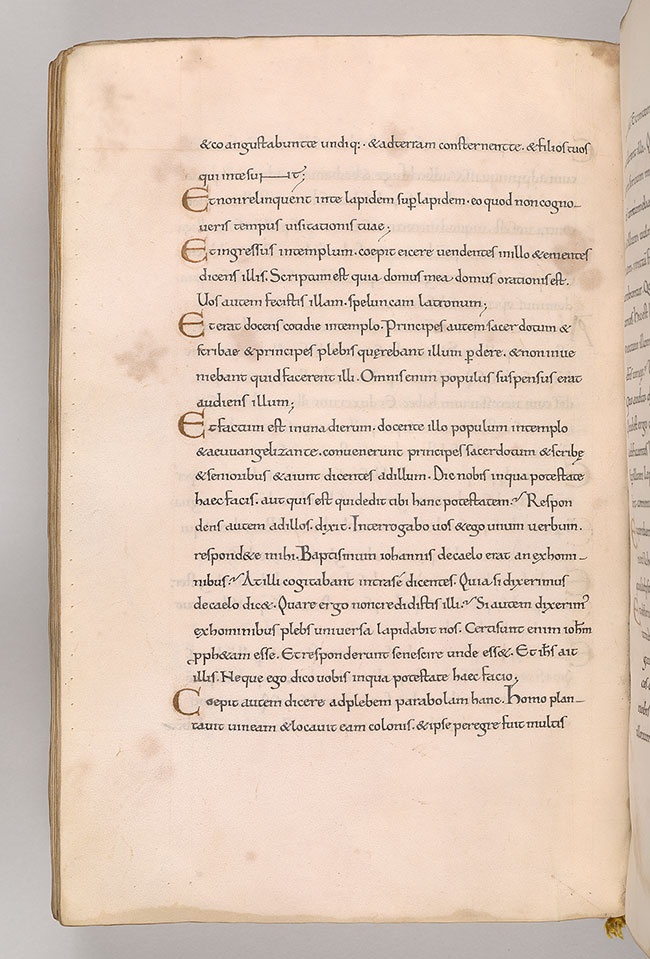 &coangustabunt te undiq:· & ad terram consternent te· & filios tuos
qui in te sui——it;
Et non relinquent in te lapidem sup lapidem· eo quod non cogno-
ueris tempus uisitationis tuae;
Et ingressus in templum· coepit eicere uendentes in illo & ementes
dicens illis. Scriptum est quia domus mea domus orationis est.
Uos autem fecistis illam· speluncam latronum;
Et erat docens cotidie in templo· Principes autem sacerdotum &
scribae & principes plebis quęrebant illum pdere· & non inue
niebant quid facerent illi· Omnis enim populus suspensus erat
audiens illum;
Et factum est in una dierum· docente illo populum in templo
& aeuuangelizante· conuenerunt principes sacerdotum & scribę
& senioribus & aiunt dicentes ad illum· Dic nobis in qua potestate
haec facis· aut quis est qui dedit tibi hanc potestatem? Respon
dens autem ad illos· dixit· Interrogabo uos & ego unum uerbum.
respond&e mihi· Baptismum iohannis de caelo erat an ex hom-
nibus? At illi cogitabant intra sé dicentes· Quia si dixerimus
de caelo dic&· Quare ergo non credidistis illi? Si autem dixerim'
ex hominibus plebs uniuersa lapidabit nos· Certi sunt enim iohm
pph&am esse· Et responderunt se nescire unde ess&· Et ihs ait
illis· Neque ego dico uobis in qua potestate haec facio;
Coepit autem dicere ad plebem parabolam hanc· Homo plan-
tauit uineam & locauit eam colonis· & ipse peregre fuit multis